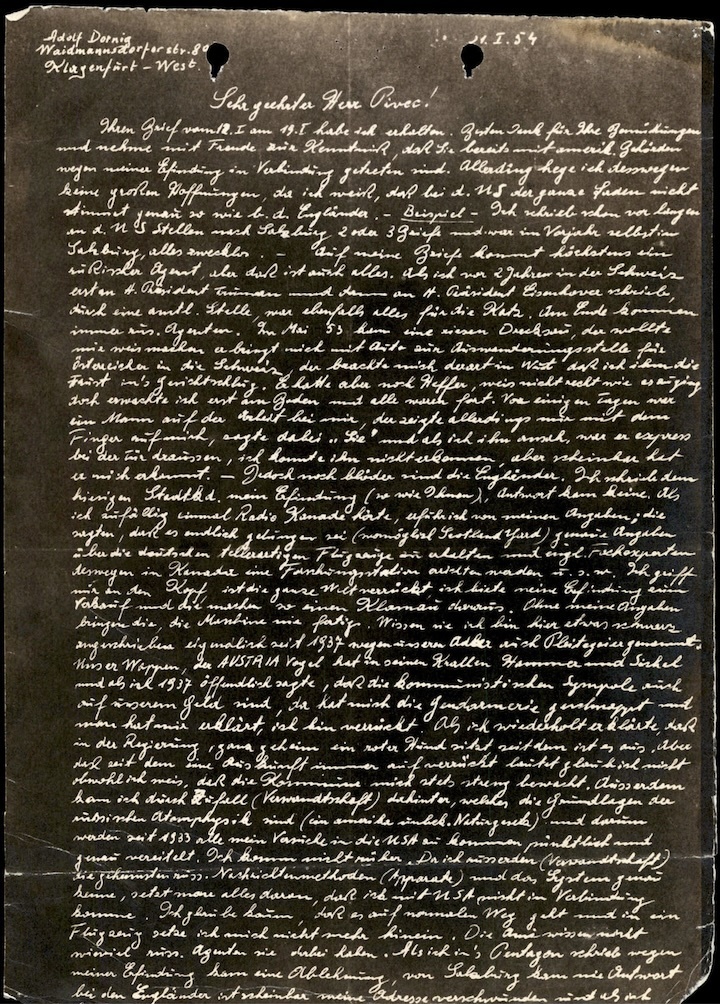 Adolf Dornig
Waidmannsdorferstr. 80
Klagenfurt – West.
21. I. 54
Sehr geehrter Herr Pivec!
Ihren Brief vom 18. I am 19. I habe ich erhalten. Besten Dank für Ihre Bemühungen
und nehme mit Freude zur Kenntniß, daß Sie bereits mit amerik. Behörden
wegen meiner Erfindung in Verbindung getreten sind. Allerding hege ich desswegen
keine großen Hoffnungen, da ich weiß, daß bei d. US der ganze Laden nicht
stimmt genau so wie b. d. Engländer. – Beispiel – Ich schrieb schon vor langem
an d. US Stellen nach Salzburg 2 oder 3 Briefe und war im Vorjahr selbst in
Salzburg, alles zwecklos. – Auf meine Briefe kommt höchstens ein
rußischer Agent, aber daß ist auch alles. Als ich vor 2 Jahren in der Schweiz
erst an H. Präsident Truman und dann an H. Präsident Eisenhover schrieb,
durch eine amtl. Stelle, war ebenfalls alles für die Katz. Am Ende kommen
immer rus. Agenten. Im Mai 53 kam eine riesen Drecksau, der wollte
mir weismachen er bringt mich mit Auto zur Auswanderungsstelle für
Österreicher in die Schweiz, der brachte mich derart in Wut daß ich ihm die
Faust in's Gesicht schlug. Er hatte aber noch Helfer, weis nicht recht wie es zuging
doch erwachte ich erst am Boden und alle waren fort. Vor einigen Tagen war
ein Mann auf der Arbeit bei mir, der zeigte allerdings nur mit dem
Finger auf mich, sagte dabei „Sie" und als ich ihn ansah, war er express
bei der Tür draussen, ich konnte ihn nicht erkennen, aber scheinbar hat
er mich erkannt. – Jedoch noch blöder sind die Engländer. Ich schrieb dem
hiesigen Stadtkd. mein Erfindung (so wie Ihnen), Antwort kam keine. Als
ich zufällig einmal Radio Kanada hörte, erfuhr ich von meinen Angaben; die
sagten, daß es endlich gelungen sei (womöglich Scotland Yard) genaue Angaben
über die deutschen tellerartigen Flugzeuge zu erhalten und engl. Fachexperten
deswegen in Kanada eine Forschungsstation errichten werden u. s. w. Ich griff
mir an den Kopf, ist die ganze Welt verrückt, ich biete meine Erfindung zum
Verkauf und die machen so einen Klamau daraus. Ohne meine Angaben
bringen die, die Maschine nie fertig. Wissen sie ich bin hier etwas schwarz
angeschrieben eigendlich seit 1937 wegen unseren Adler auch Pleitegeier genannt.
Unser Wappen, der AUSTRIA Vogel hat in seinen Krallen Hammer und Sichel
und als ich 1937 öffendlich sagte, daß die kommunistischen Symbole auch
auf unserem Geld sind, da hat mich die Gendarmerie geschnappt und
man hat mir erklärt, ich bin verrückt. Als ich wiederholt erklärte, daß
in der Regierung, ganz geheim ein roter Hund sitzt seitdem ist es aus. Aber
daß seit dem eine Auskunft immer auf verrückt lautet glaub ich nicht
obwohl ich weis, daß die Kommune mich stets streng bewacht. Ausserdem
kam ich durch Zufall (Verwandtschaft) dahinter, welches die Grundlagen der
russischen Atomphysik sind (ein amerika unbek. Naturgesetz) und darum
werden seit 1933 alle mein Versuche in die USA zu kommen pünktlich und
genau vereitelt. Ich komm nicht rüber. Da ich ausserdem (Verwandtschaft)
die geheimsten russ. Nachrichtenmethoden (Apparate) und das System genau
kenne, setzt man alles daran, daß ich mit USA nicht in Verbindung
komme. Ich glaube kaum, daß es auf normalen Weg geht und in ein
Flugzeug setze ich mich nicht mehr hinein. Die Ame wissen nicht
wieviel russ. Agenten sie dabei haben. Als ich in's Pentagon schrieb wegen
meiner Erfindung kam eine Ablehnung, von Salzburg kam nie Antwort
bei den Engländer ist scheinbar meine Adresse verschwunden und als ich